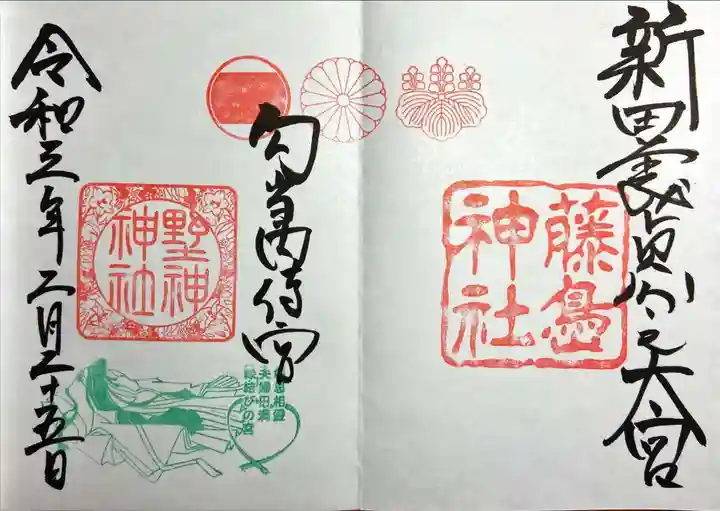 新田義貞公之大宮
藤島
神社
勾当内侍宮
野神
神社
相思相愛
夫婦円満
縁結びの宮
令和三年二月二十五日